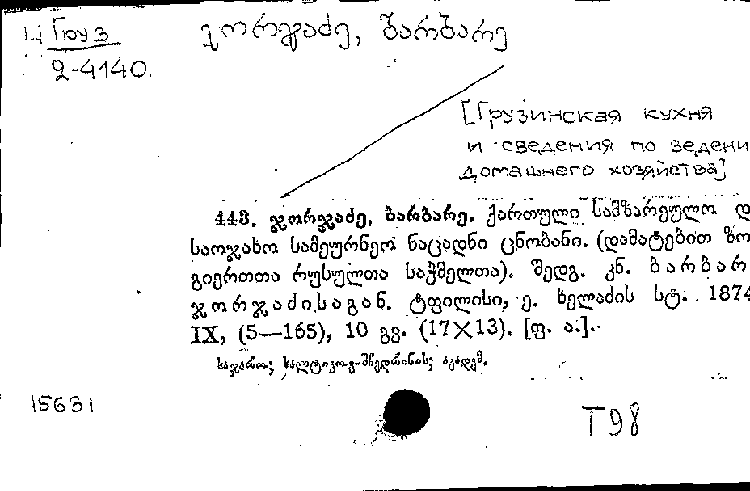 14 Груз
2-4140.
ჯორჯაძე, ბარბარე
[Грузинская кухня
и сведения по ведени
домашнего хозяйства]
443. ჯორჯაძე, ბარბარე. ქართული სამზარეულო დ
საოჯახო სამეურნეო ნაცადნი ცნობანი. (დამატებით ზო
გიერთთა რუსულთა საჭმელთა). შედგ. კნ. ბარბარ
ჯორჯაძისაგან. ტფილისი, ე. ხელაძის სტ. 1874
IX, (5—165), 10 გვ. (17×13). [ფ. ა.].
საჯარო; სალტიკოვ-შჩედრინის;
15631
T98